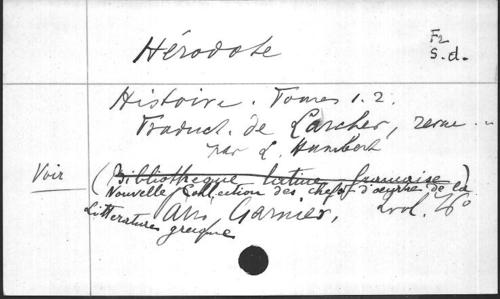 Hérodote
F2
S.d.
Histoire. Tomes 1.2.
Traduct. de Larcher, revue
par L. Humbert
Voir
(Bibliothèque latine française)
Nouvelle Collection des chefs d'œuvre de la
Littérature grecque
Garnier, 2 vol.